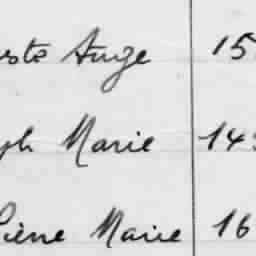 uste Ange 15
ph Marie 143
ière Marie 16